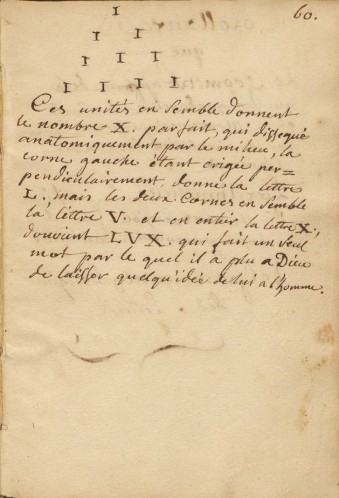 60.
I
I I
I I I
I I I I
Ces unités en semble donnent
le nombre X. parfait, qui dissequé
anatomiquement par le milieu, la
corne gauche étant erigée per=
pendiculairement, donne la lettre
L., mais les deux Cornes en semble
la lettre V. et en entier la lettre X.,
d'ou vient LVX. qui fait un seul
mot par le quel il à plu a Dieu
de laisser quelqu'idée de lui a l'homme.